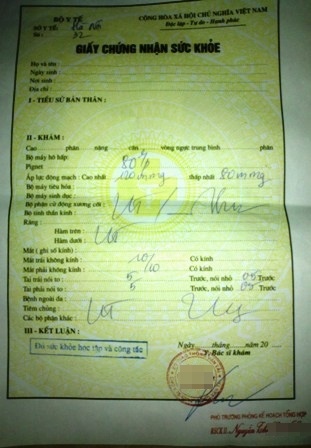 BỘ Y TẾ
Số : 32
CỘNG HÒA XÃ HỘI CHỦ NGHĨA VIỆT NAM
Độc lập - Tự do - Hạnh phúc
GIẤY CHỨNG NHẬN SỨC KHỎE
Họ và tên :
Ngày sinh :
Nơi sinh :
Địa chỉ :
I - TIỂU SỬ BẢN THÂN :
II - KHÁM :
Cao phân nặng cân vòng ngực trung bình phân
Bộ máy hô hấp :
Pignet 80
Áp lực động mạch : Cao nhất 120 mmg thấp nhất 80 mmg
Bộ máy tiêu hóa :
Bộ máy sinh dục :
Bộ phận cử động xương cốt :
Bộ sinh thần kinh
Răng :
Hàm trên :
Hàm dưới :
Mắt ( ghi số kính) :
Mắt trái không kính : 10/10 Có kính
Mắt phải không kính : Có kính
Tai trái nói to : 5 Trước, nói nhỏ 05 Trước
Tai phải nói to : 5 Trước, nói nhỏ 05 Trước
Bệnh ngoài da :
Tiêm chủng :
Các bộ phận khác :
III - KẾT LUẬN :
Đủ sức khỏe học tập và công tác
Ngày tháng năm 20
Y. Bác sĩ khám
PHÓ TRƯỞNG PHÒNG KẾ HOẠCH TỔNG HỢP
Nguyễn